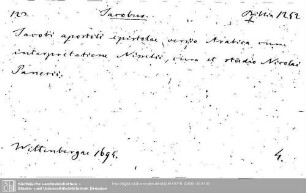 120. Jacobus. Biblia 1252
Jacobi apostoli epistolae versio Arabica cum
interpretatione
cura et studio Nicolai
Panerii.
Wittenbergae 1694. 4.
Sächsische Landesbibliothek -
Staats- und Universitätsbibliothek Dresden